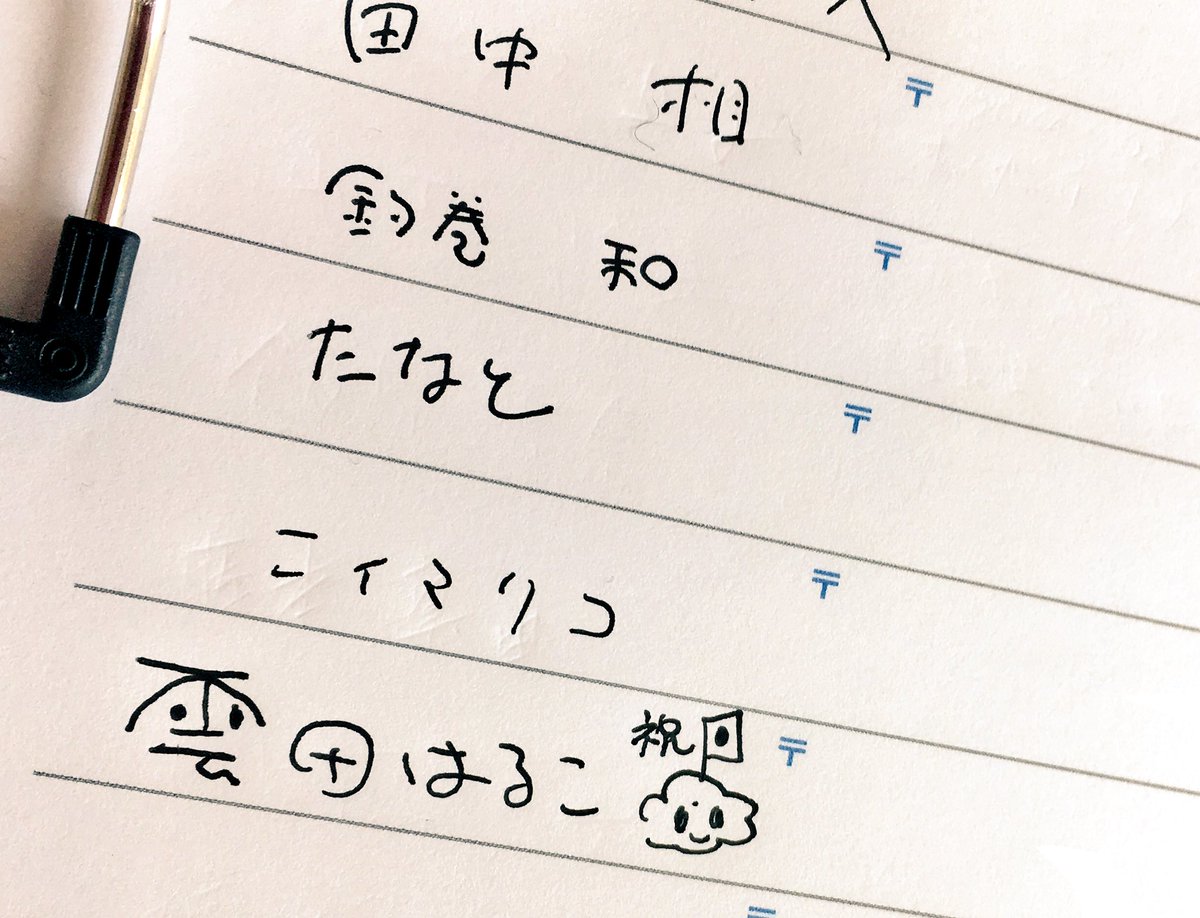 田中 相
〒
釣巻 和
〒
たなと
〒
ニイマリコ
〒
雲田はるこ 祝
〒
〒